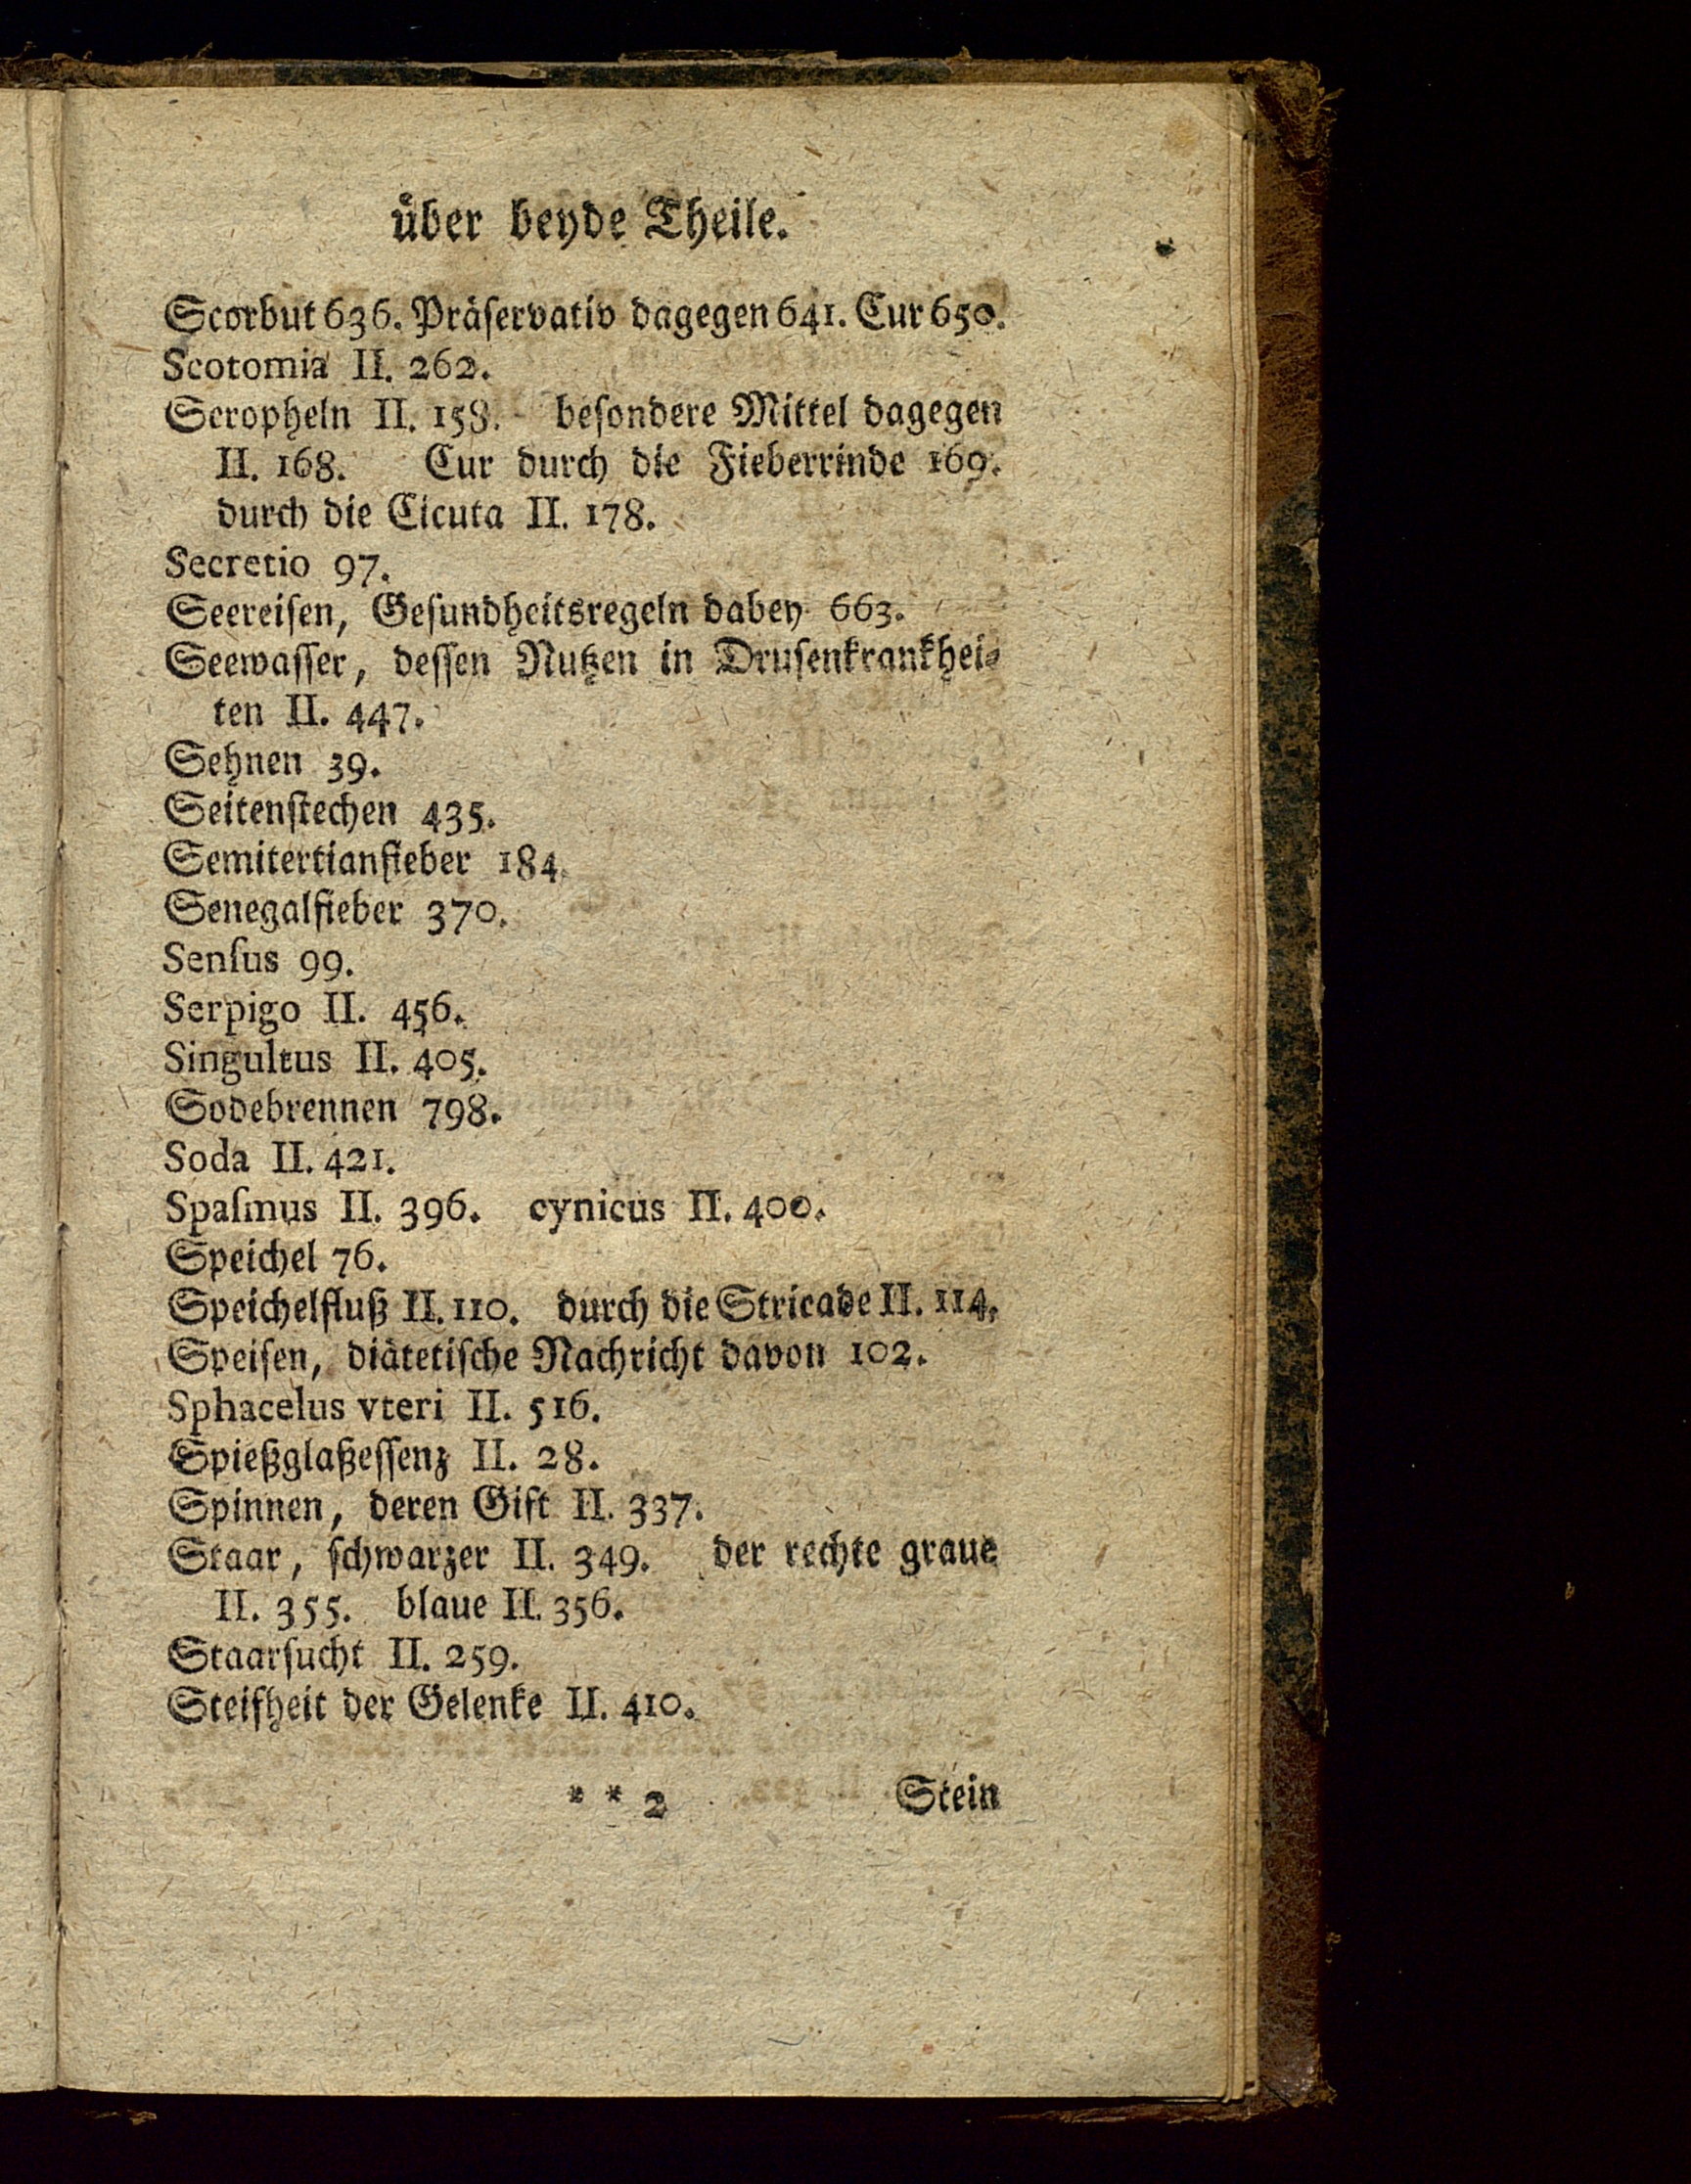 über beyde Theile.
Scorbut 636. Präſervativ dagegen 641. Cur 650.
Scotomia II. 262.
Scropheln II. 158. beſondere Mittel dagegen
II. 168. Cur durch die Fieberrinde 169.
durch die Cicuta II. 178.
Secretio 97.
Seereiſen, Geſundheitsregeln dabey 663.
Seewaſſer, deſſen Nutzen in Druſenkrankhei⸗
ten II. 447.
Sehnen 39.
Seitenſtechen 435.
Semitertianfieber 184.
Senegalfieber 370.
Senſus 99.
Serpigo II. 456.
Singultus II. 405.
Sodebrennen 798.
Soda II. 421.
Spaſmus II. 396. cynicus II. 400.
Speichel 76.
Speichelfluß II. 110. durch die Stricade II. 114.
Speiſen, diätetiſche Nachricht davon 102.
Sphacelus vteri II. 516.
Spießglaßeſſenz II. 28.
Spinnen, deren Gift II. 337.
Staar, ſchwarzer II. 349. der rechte graue
II. 355. blaue II. 356.
Staarſucht II. 259.
Steifheit der Gelenke II. 410.
* * 2 Stein